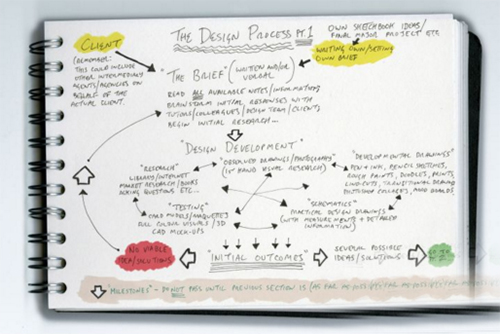 THE DESIGN PROCESS PT.1
OWN SKETCHBOOK IDEAS/
FINAL MAJOR PROJECT ETC
CLIENT
WRITING OWN/SETTING
OWN BRIEF
(REMEMBER:
THIS COULD INCLUDE
OTHER INTERMEDIARY
AGENTS/AGENCIES ON
BEHALF OF THE
ACTUAL CLIENT.
"THE BRIEF" (WRITTEN AND/OR
VERBAL)
READ ALL AVAILABLE NOTES/INFORMATION,
BRAINSTORM INITIAL RESPONSES WITH
TUTORS/COLLEAGUES/DESIGN TEAM/CLIENT,
BEGIN INITIAL RESEARCH...
"DESIGN DEVELOPMENT"
"RESEARCH"
LIBRARY/INTERNET
MARKET RESEARCH/BOOKS
ASKING QUESTIONS ETC...
"OBSERVED DRAWINGS/PHOTOGRAPHY"
(1ST HAND VISUAL RESEARCH)
"DEVELOPMENTAL DRAWINGS"
PEN & INK, PENCIL SKETCHES,
ROUGH PRINTS, DOODLES, PAINTS,
LINO CUTS, TRADITIONAL DRAWING
PHOTOSHOP COLLAGES, MOOD BOARDS
"TESTING"
CARD MODELS/MAQUETTES
FULL COLOUR VISUALS/3D
CAD MOCK-UPS
"SCHEMATICS"
PRACTICAL DESIGN DRAWINGS
(WITH MEASUREMENTS & DETAILED
INFORMATION)
NO VIABLE
IDEA/SOLUTIONS
"INITIAL OUTCOMES"
DEVELOP POSSIBLE
IDEAS/SOLUTIONS
"MILESTONES" - DO NOT PASS UNTIL PREVIOUS SECTION IS (AS FAR AS POSSIBLE)